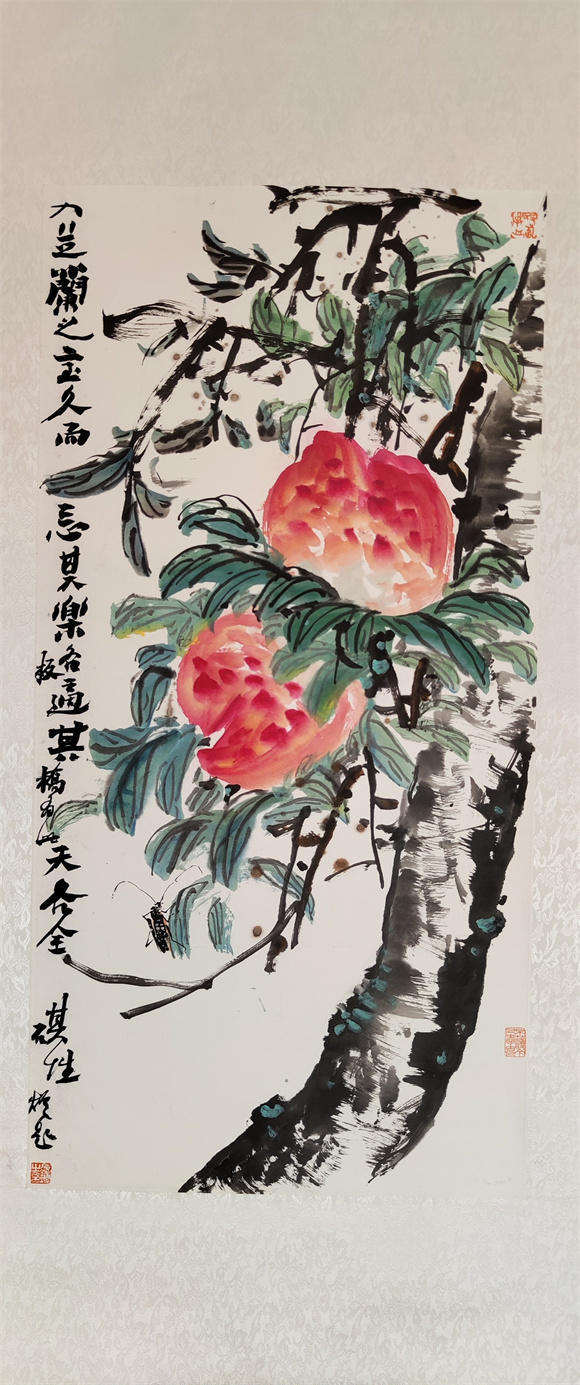 入芝蘭之室久而忘其樂各適其天各全其性
板橋有此
題